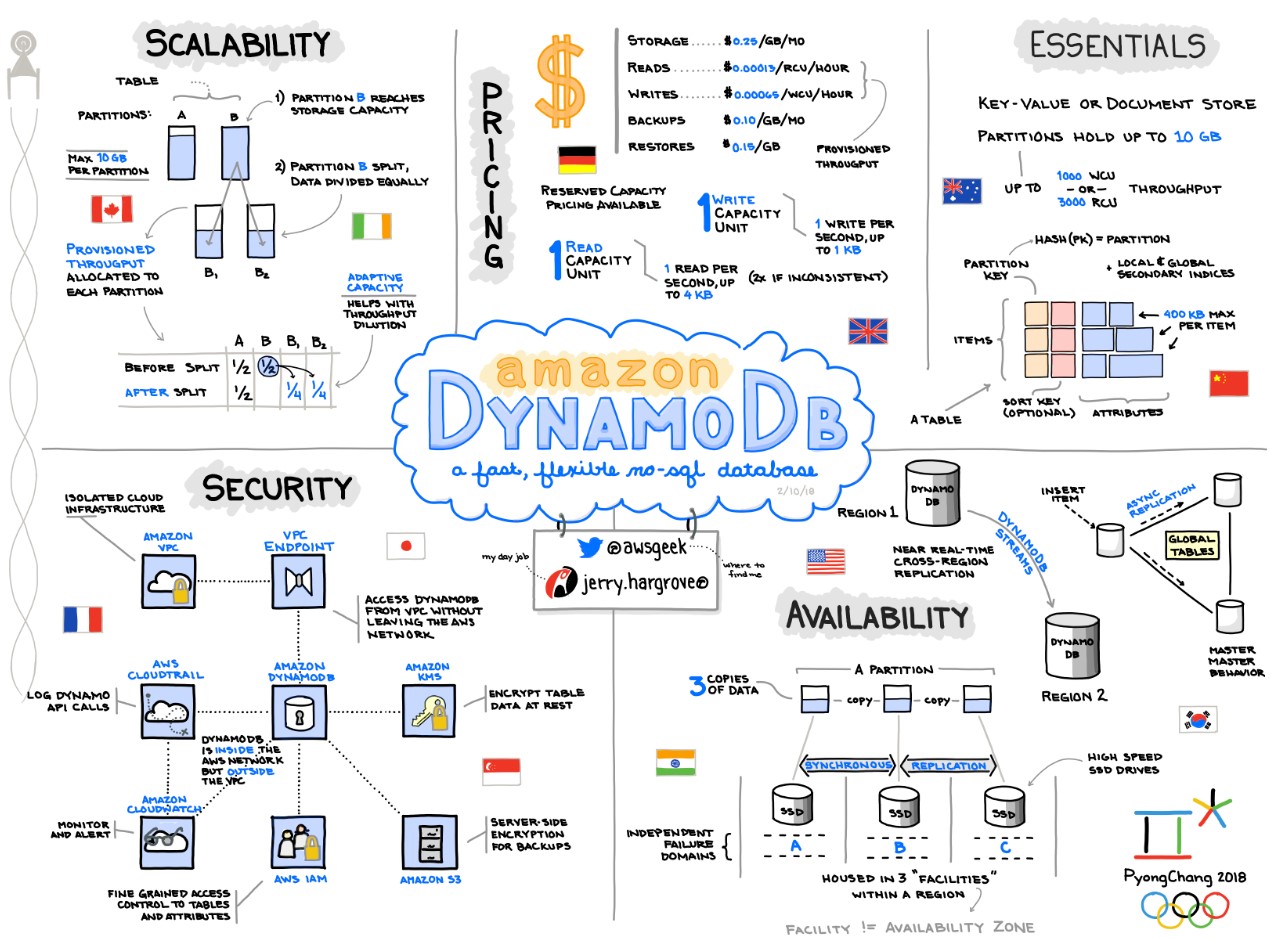 SCALABILITY
TABLE
PARTITIONS:
A
B
1) PARTITION B REACHES
STORAGE CAPACITY
MAX 10 GB
PER PARTITION
2) PARTITION B SPLIT,
DATA DIVIDED EQUALLY
PROVISIONED
THROUGPUT
ALLOCATED TO
EACH PARTITION
B1
B2
ADAPTIVE
CAPACITY
HELPS WITH
THROUGHPUT
DILUTION
A B B1 B2
BEFORE SPLIT 1/2 1/2
AFTER SPLIT 1/2 1/4 1/4
PRICING
$
STORAGE...... $0.25/GB/MO
READS ........ $0.00013/RCU/HOUR
WRITES ....... $0.00065/WCU/HOUR
BACKUPS $0.10/GB/MO
RESTORES $0.15/GB
PROVISIONED
THROUGHPUT
RESERVED CAPACITY
PRICING AVAILABLE
1 WRITE
CAPACITY
UNIT
1 WRITE PER
SECOND, UP
TO 1 KB
1 READ
CAPACITY
UNIT
1 READ PER
SECOND, UP
TO 4 KB
(2X IF INCONSISTENT)
ESSENTIALS
KEY-VALUE OR DOCUMENT STORE
PARTITIONS HOLD UP TO 10 GB
UP TO
1000 WCU
- OR -
3000 RCU
THROUGHPUT
HASH(PK) = PARTITION
PARTITION
KEY
+ LOCAL & GLOBAL
SECONDARY INDICES
ITEMS
400 KB MAX
PER ITEM
SORT KEY
(OPTIONAL)
ATTRIBUTES
A TABLE
amazon
DYNAMODB
a fast, flexible no-sql database
2/10/18
@awsgeek
my day job
where to
find me
jerry.hargrove@
SECURITY
ISOLATED CLOUD
INFRASTRUCTURE
AMAZON
VPC
VPC
ENDPOINT
ACCESS DYNAMODB
FROM VPC WITHOUT
LEAVING THE AWS
NETWORK
AWS
CLOUDTRAIL
AMAZON
DYNAMODB
AMAZON
KMS
LOG DYNAMO
API CALLS
ENCRYPT TABLE
DATA AT REST
DYNAMODB
IS INSIDE THE
AWS NETWORK
BUT OUTSIDE
THE VPC
AMAZON
CLOUDWATCH
MONITOR
AND ALERT
SERVER-SIDE
ENCRYPTION
FOR BACKUPS
AWS IAM
AMAZON S3
FINE GRAINED ACCESS
CONTROL TO TABLES
AND ATTRIBUTES
REGION 1
DYNAMO
DB
DYNAMODB
STREAMS
NEAR REAL-TIME
CROSS-REGION
REPLICATION
DYNAMO
DB
REGION 2
INSERT
ITEM
ASYNC
REPLICATION
GLOBAL
TABLES
MASTER
MASTER
BEHAVIOR
AVAILABILITY
A PARTITION
3 COPIES
OF DATA
- COPY -
- COPY -
SYNCHRONOUS
REPLICATION
HIGH SPEED
SSD DRIVES
SSD
SSD
SSD
INDEPENDENT
FAILURE
DOMAINS
A
B
C
HOUSED IN 3 "FACILITIES"
WITHIN A REGION
FACILITY != AVAILABILITY ZONE
PyeongChang 2018